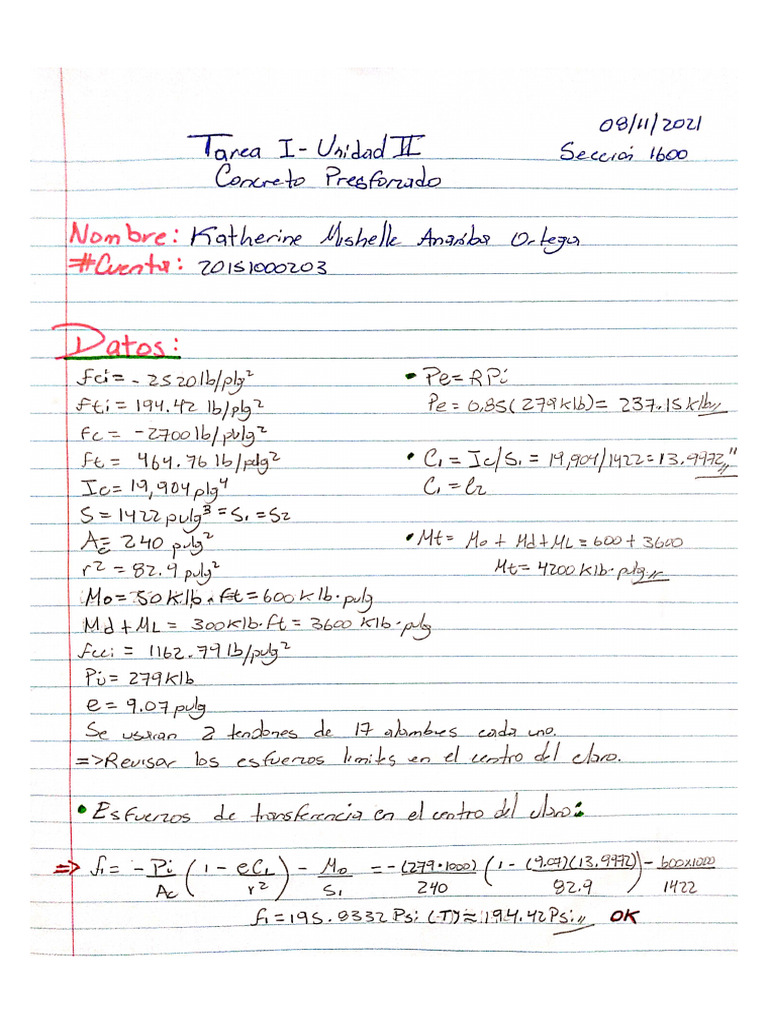 08/11/2021
Tarea I - Unidad II
Sección 1600
Concreto Presforzado
Nombre: Katherine Mishelle Anariba Ortega
#Cuenta: 20151000203
Datos:
fci = -2520 lb/plg²
fti = 194.42 lb/plg²
fc = -2700 lb/pulg²
ft = 464.76 lb/pulg²
Ic = 19,904 plg⁴
S = 1422 pulg³ = S₁ = S₂
Ac = 240 pulg²
r² = 82.9 pulg²
Mo = 50 Klb.ft = 600 Klb.pulg
Md + ML = 300 Klb.ft = 3600 Klb.pulg
fcci = 1162.79 lb/pulg²
Pi = 279 Klb
e = 9.07 pulg
• Pe = RPi
Pe = 0.85 (279 klb) = 237.15 klb
• C₁ = Ic/S₁ = 19,904/1422 = 13.9972"
C₁ = C₂
• Mt = Mo + Md + ML = 600 + 3600
Mt = 4200 Klb.pulg
Se usaran 2 tendones de 17 alambres cada uno.
=> Revisar los esfuerzos limites en el centro del claro.
• Esfuerzos de transferencia en el centro del claro:
=> f₁ = -Pi/Ac (1 - eC₁/r²) - Mo/S₁ = -(279*1000)/240 (1 - (9.07)(13.9972)/82.9) - 600x1000/1422
f₁ = 195.9332 Psi (T) ≈ 194.42 Psi OK